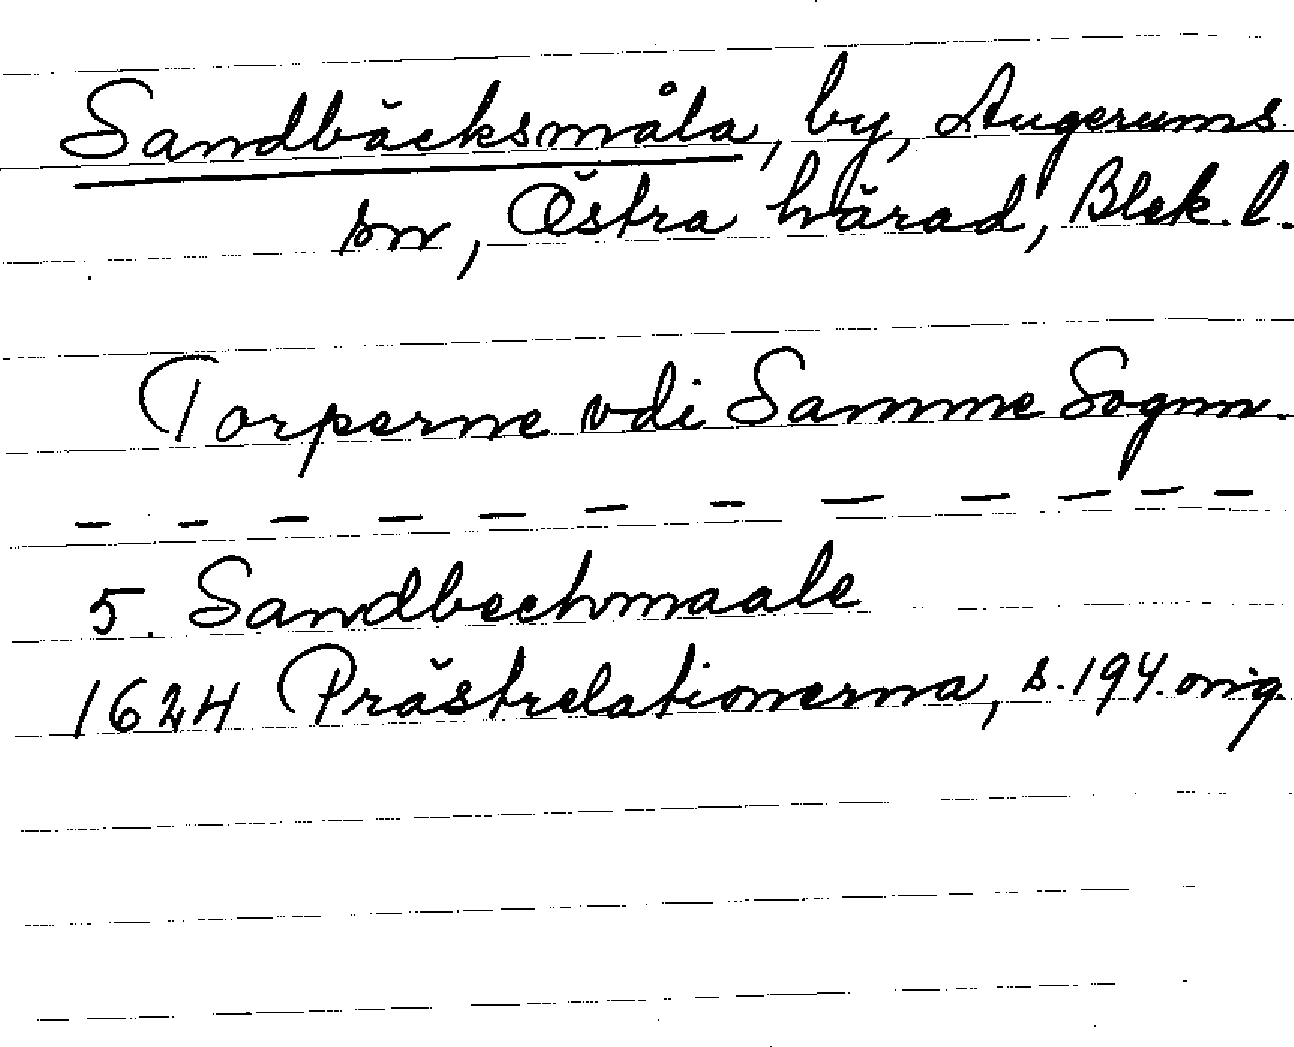 Sandbäcksmåla, by, Augerums
sn, Östra härad, Blek. l.
Torperne vdi Samme Sognn.
- - - - - - - - - - -
5. Sandbechmaale
1624 Prästrelationerna, s. 194. orig